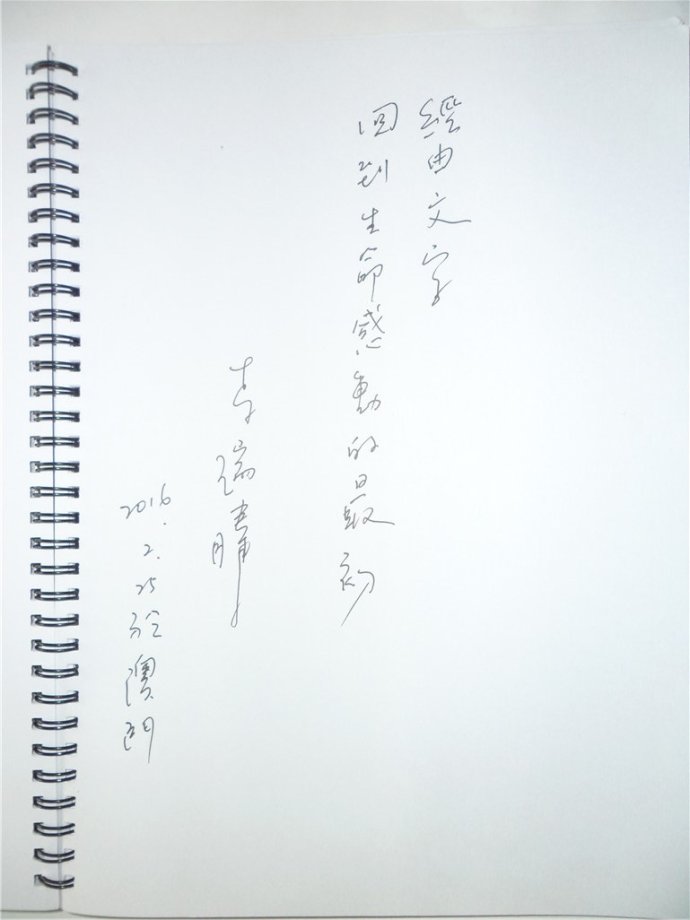 經由文字
回到生命感動的最初
李瑞騰
2016.2.25於澳門